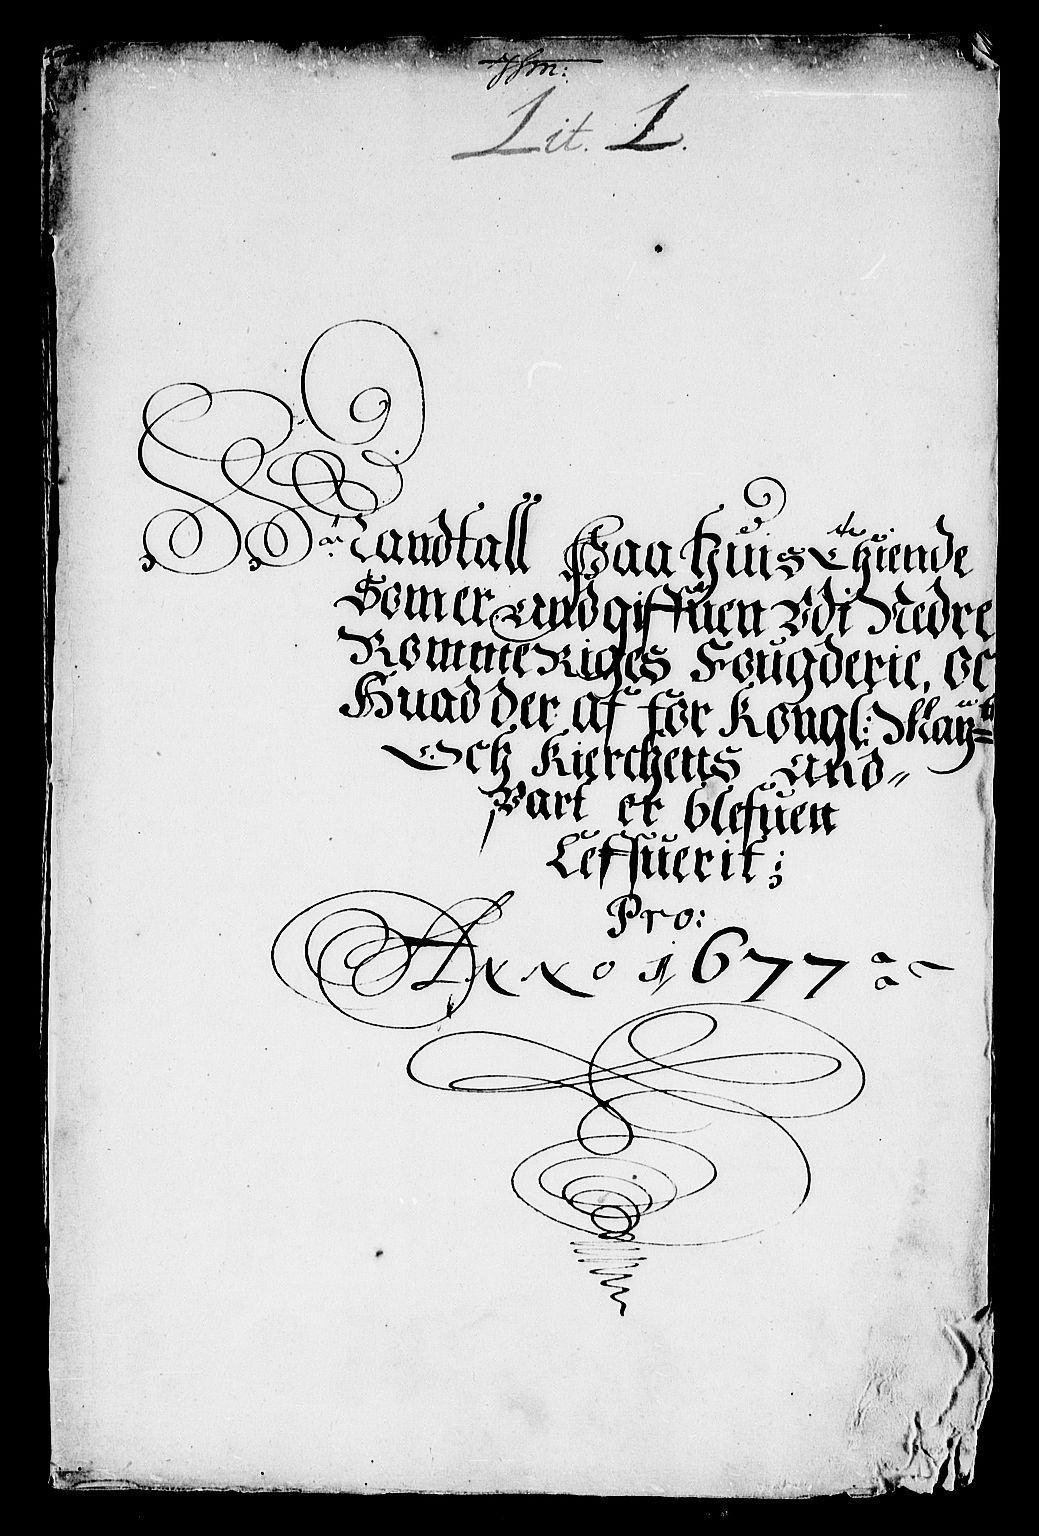 Lit. L.
Mandtall Paa huis Thiende
Som er Andgiffuen Vdi Nedre
RommeRiges Fougderie, oc
Huad der af for Kongl: May:tt
Och Kierchens And-
Part er blefuen
Leffuerit;
Pro:
Anno 1677